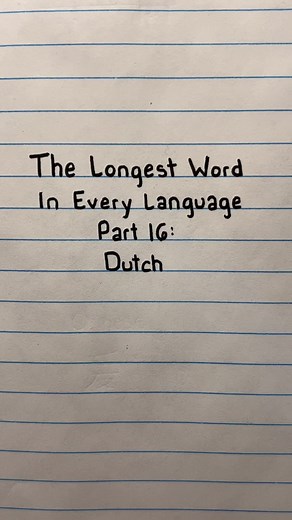 The Longest Word
In Every Language
Part 16:
Dutch